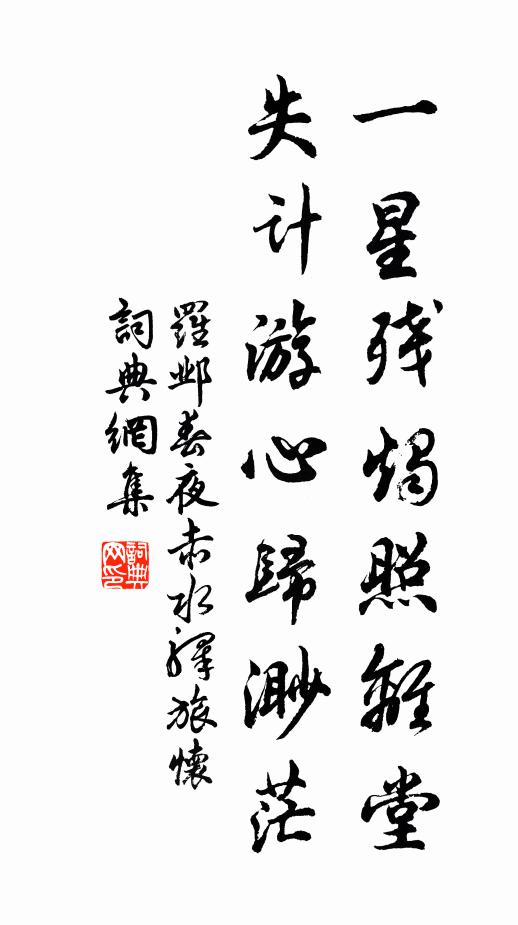 一星残燭照離堂
失计游心歸渺茫
羅邺春夜赤水驛旅懷
詞典網集
詞典網印